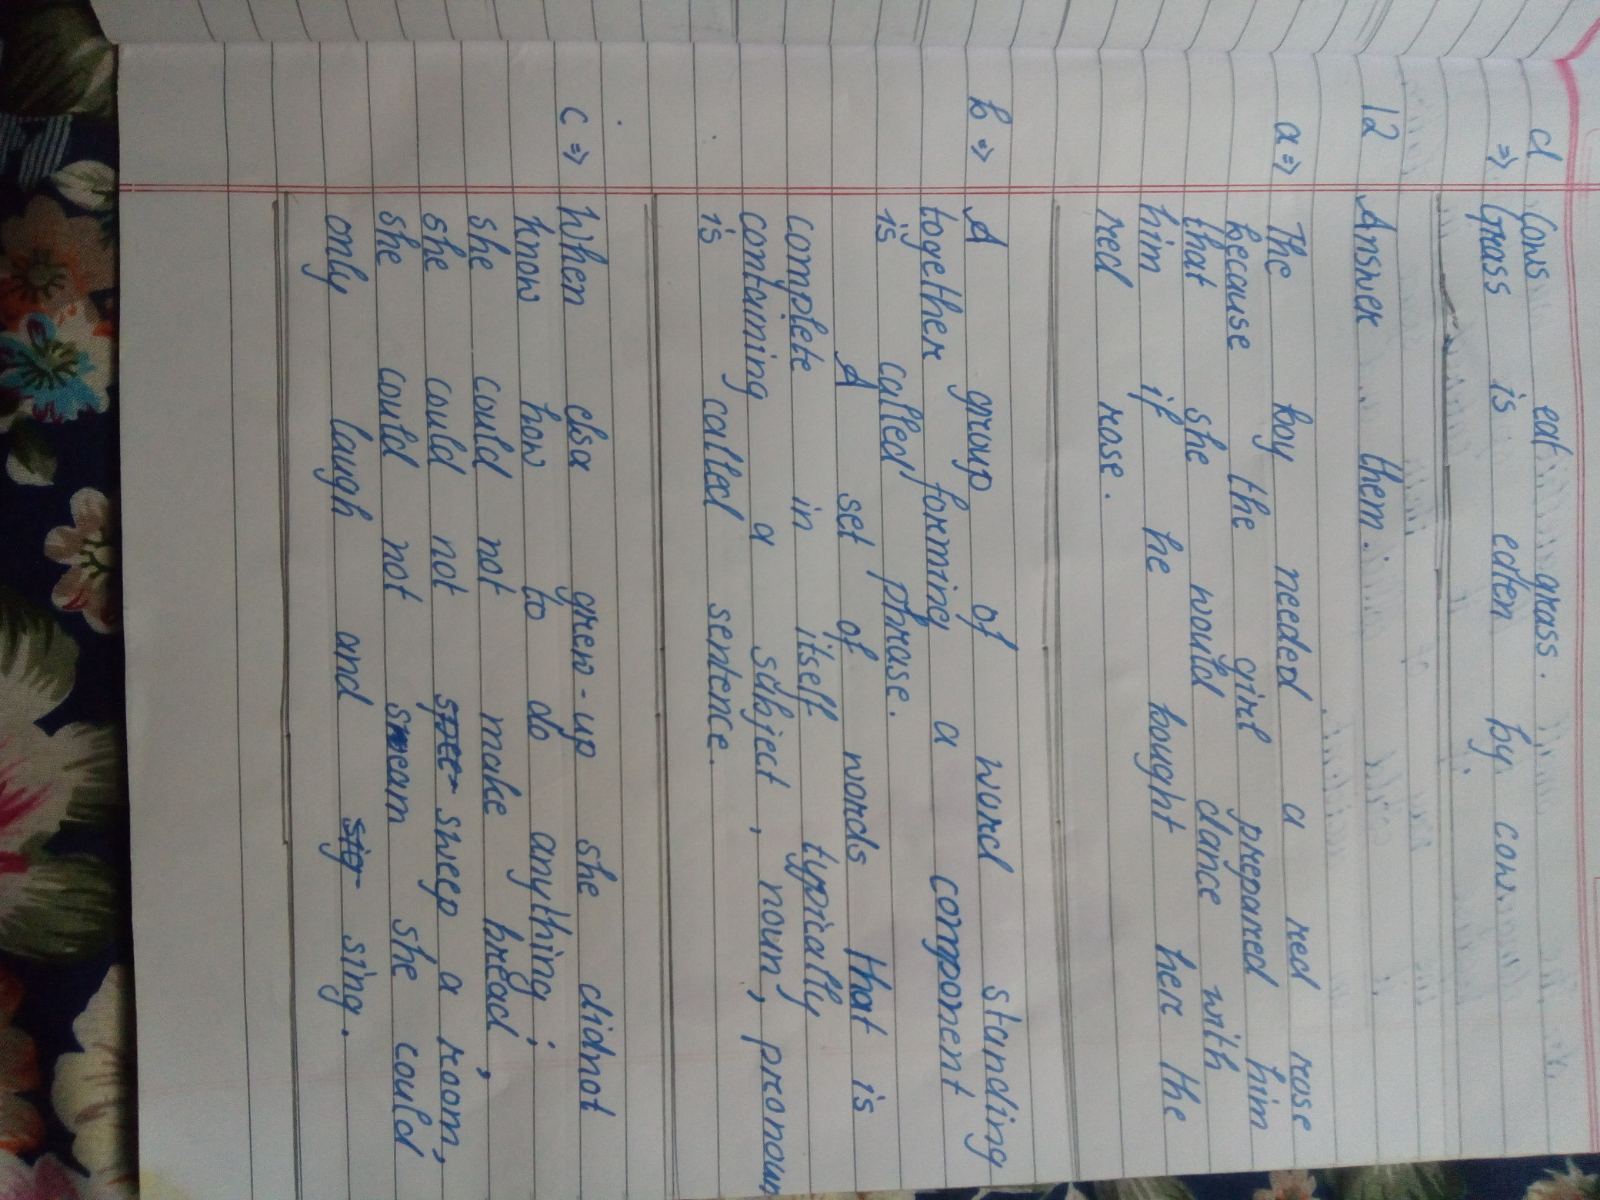 d Cows eat grass.
⇒ Grass is edten by cow.
12 Answer them:
a⇒ The boy needed a red rose
because the girl prepared him
that she would dance with
him if he bought her the
red rose.
b⇒ A group of word standing
together forming a component
is called phrase.
A set of words that is
complete in itself typically
containing a subject, noun, pronoun
is called sentence.
c⇒ When elsa grew-up she didnot
know how to do anything;
she could not make bread,
she could not sweep a room,
she could not smeam she could
only laugh and sing.